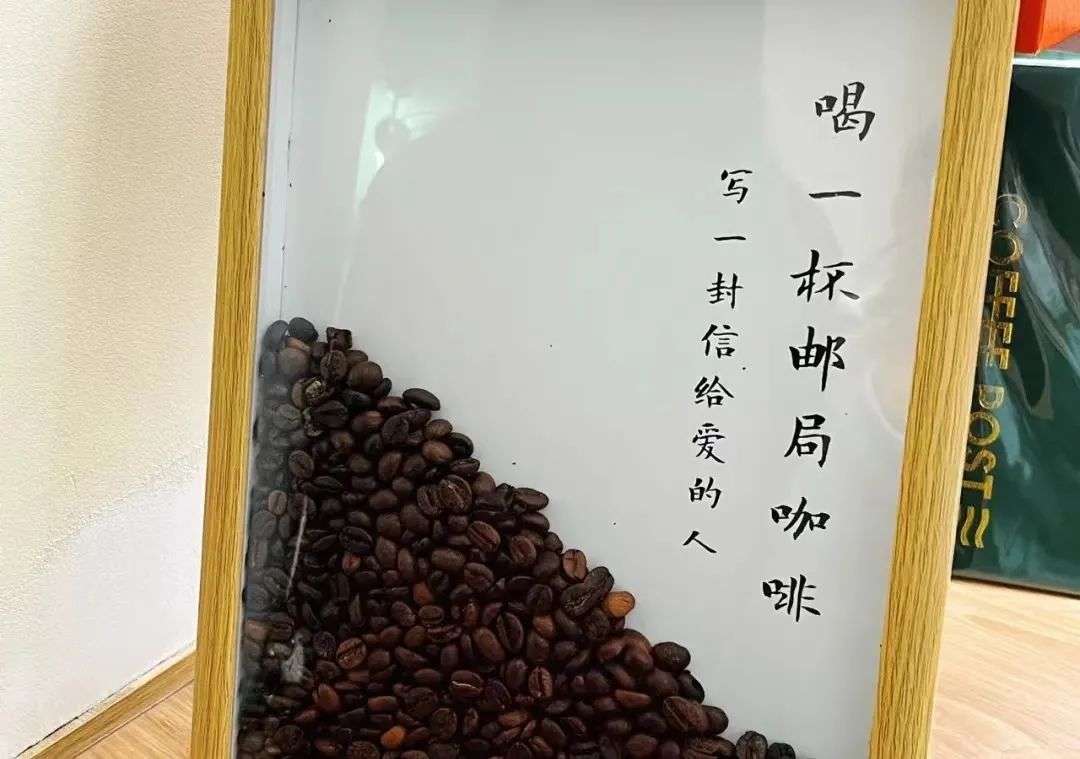 喝一杯邮局咖啡
写一封信给爱的人
COFFEE POST